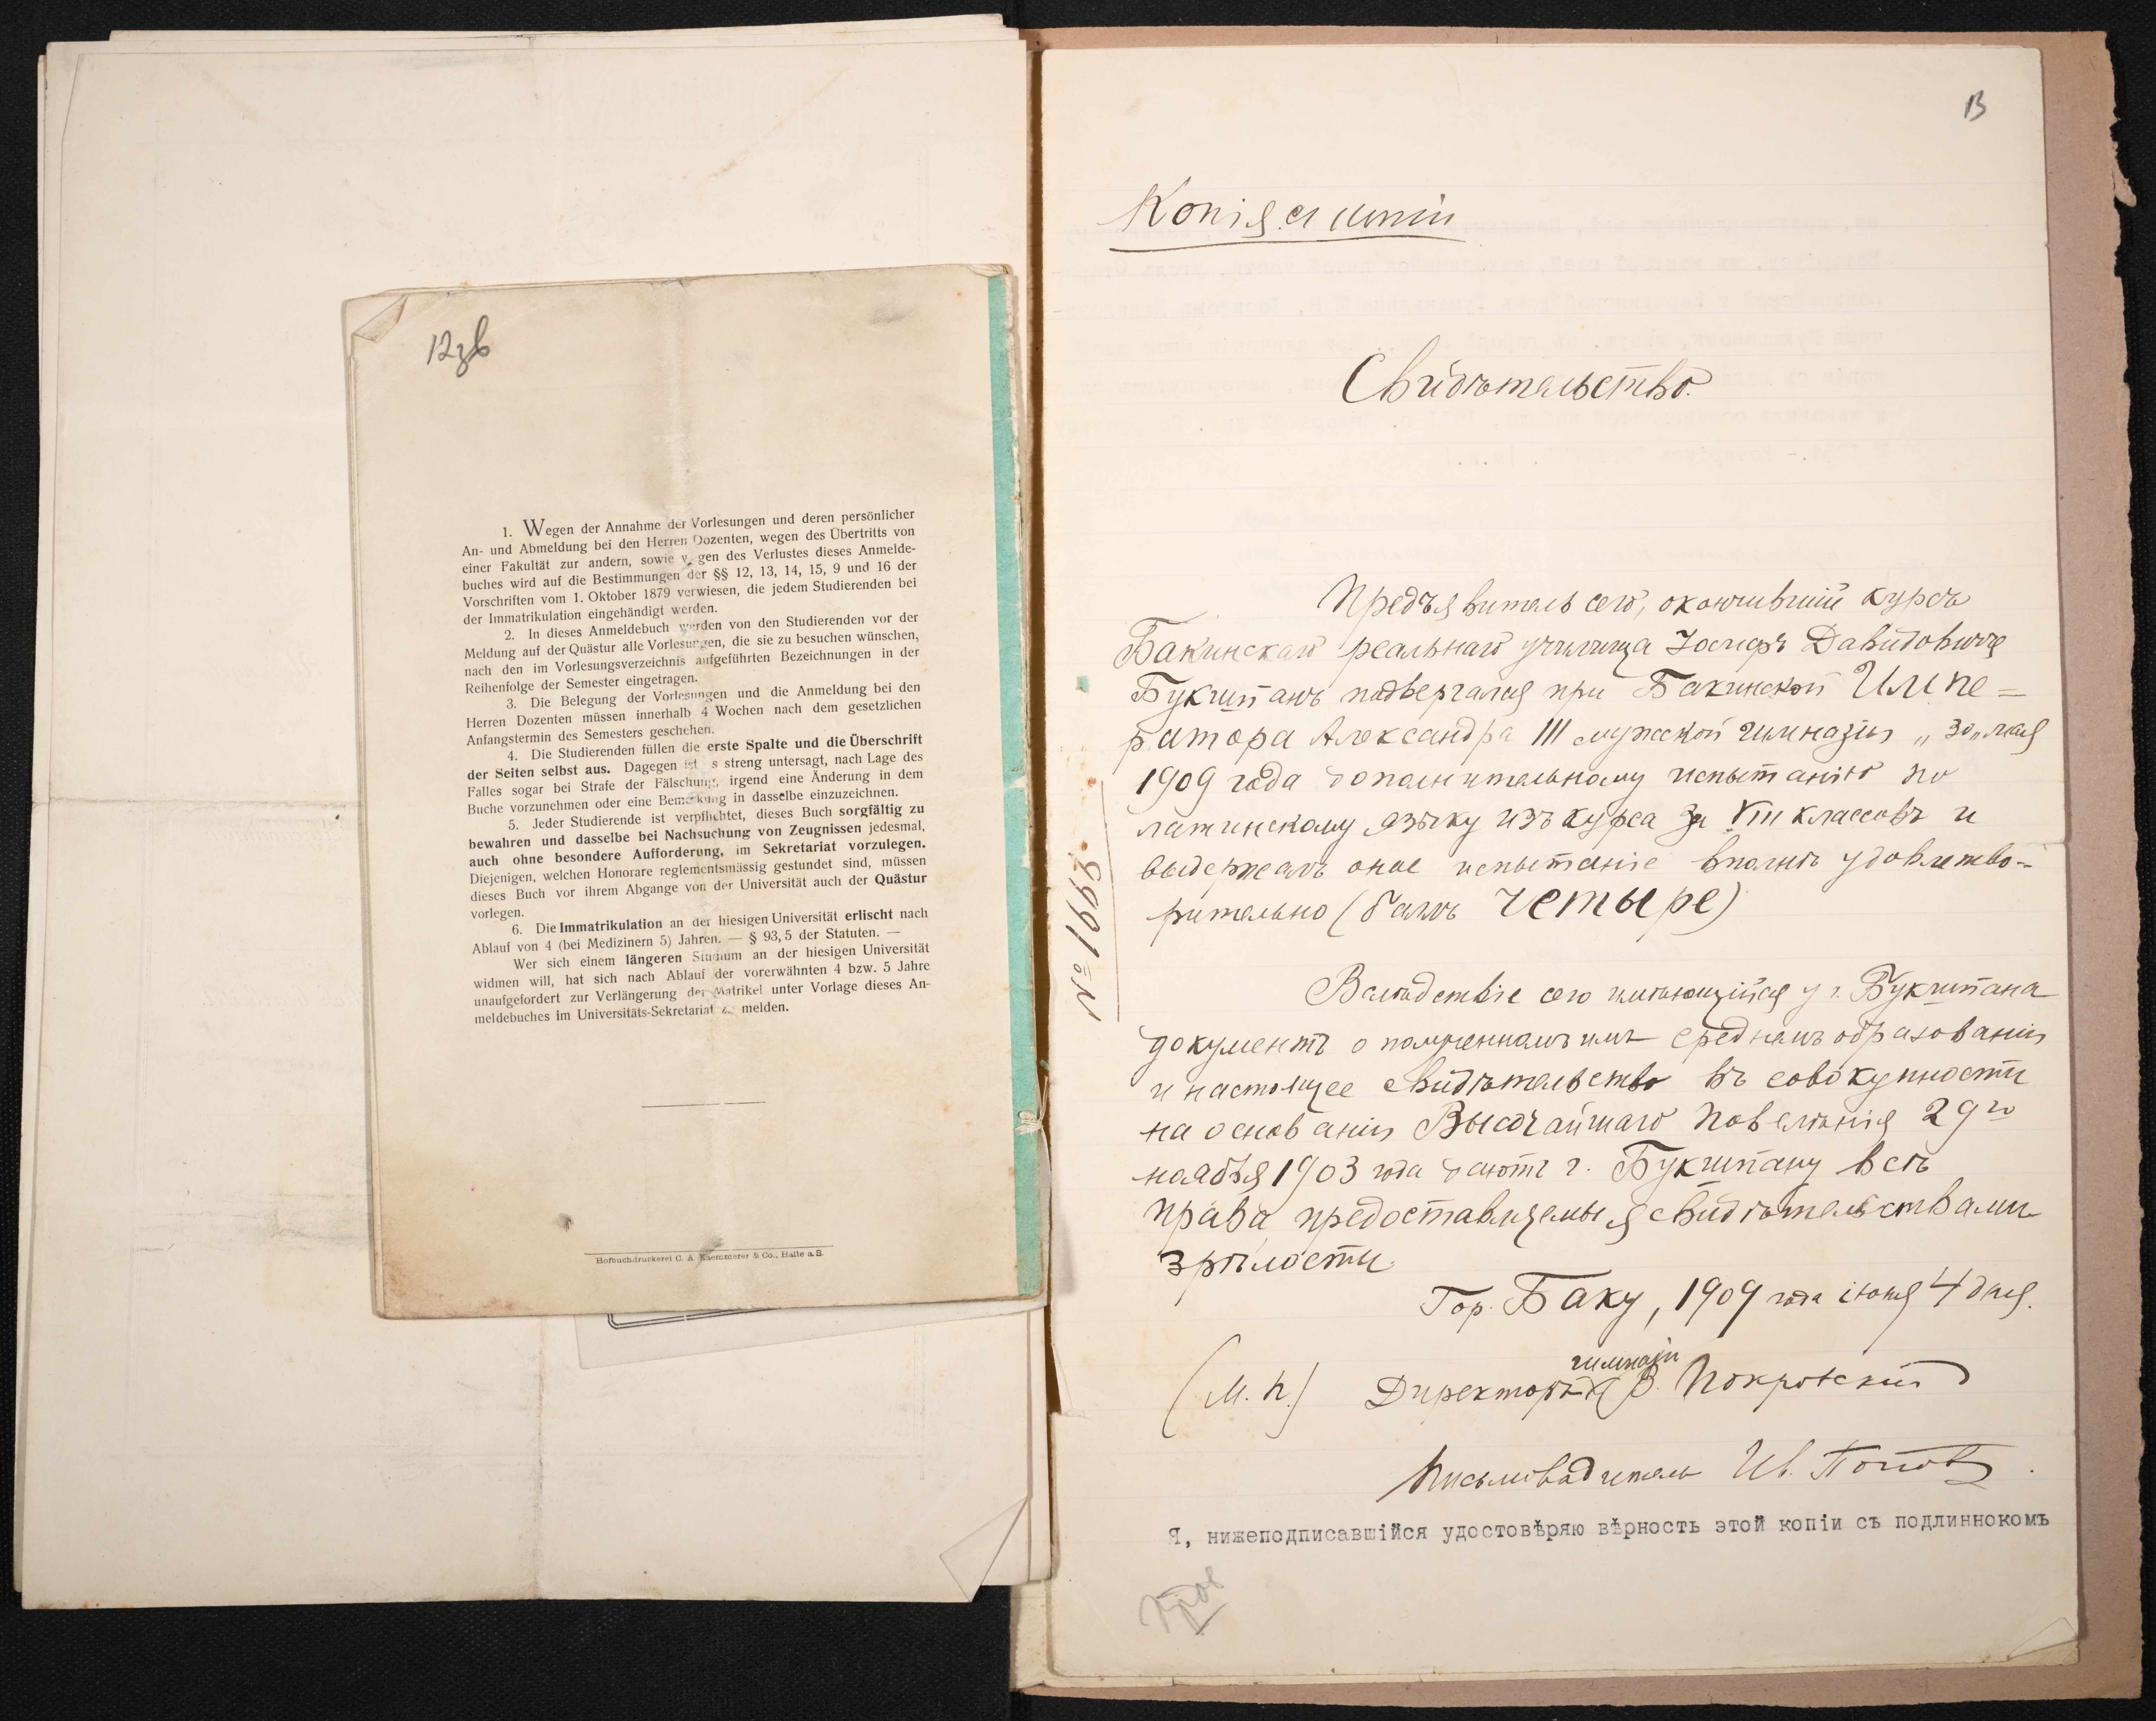 12зв
1. Wegen der Annahme der Vorlesungen und deren persönlicher
An- und Abmeldung bei den Herren Dozenten, wegen des Übertritts von
einer Fakultät zur andern, sowie wegen des Verlustes dieses Anmelde-
buches wird auf die Bestimmungen der §§ 12, 13, 14, 15, 9 und 16 der
Vorschriften vom 1. Oktober 1879 verwiesen, die jedem Studierenden bei
der Immatrikulation eingehändigt werden.
2. In dieses Anmeldebuch werden von den Studierenden vor der
Meldung auf der Quästur alle Vorlesungen, die sie zu besuchen wünschen,
nach den im Vorlesungsverzeichnis aufgeführten Bezeichnungen in der
Reihenfolge der Semester eingetragen.
3. Die Belegung der Vorlesungen und die Anmeldung bei den
Herren Dozenten müssen innerhalb 4 Wochen nach dem gesetzlichen
Anfangstermin des Semesters geschehen.
4. Die Studierenden füllen die erste Spalte und die Überschrift
der Seiten selbst aus. Dagegen ist es streng untersagt, nach Lage des
Falles sogar bei Strafe der Fälschung, irgend eine Änderung in dem
Buche vorzunehmen oder eine Bemerkung in dasselbe einzuzeichnen.
5. Jeder Studierende ist verpflichtet, dieses Buch sorgfältig zu
bewahren und dasselbe bei Nachsuchung von Zeugnissen jedesmal,
auch ohne besondere Aufforderung, im Sekretariat vorzulegen.
Diejenigen, welchen Honorare reglementsmässig gestundet sind, müssen
dieses Buch vor ihrem Abgange von der Universität auch der Quästur
vorlegen.
6. Die Immatrikulation an der hiesigen Universität erlischt nach
Ablauf von 4 (bei Medizinern 5) Jahren. — § 93,5 der Statuten. —
Wer sich einem längeren Studium an der hiesigen Universität
widmen will, hat sich nach Ablauf der vorerwähnten 4 bzw. 5 Jahre
unaufgefordert zur Verlängerung der Matrikel unter Vorlage dieses An-
meldebuches im Universitäts-Sekretariat zu melden.
Hofbuchdruckerei C. A. Kaemmerer & Co., Halle a. S.
13
Копія съ копіи
Свидѣтельство.
Предъявитель сего, окончившій курсъ
Бакинскаго реальнаго училища Іосифъ Давидовичъ
Букшпанъ подвергался при Бакинской Импе=
ратора Александра III мужской гимназіи „30„ мая
1909 года дополнительному испытанію по
латинскому языку изъ курса за VIII классовъ и
выдержалъ оное испытаніе вполнѣ удовлетво-
рительно (баллъ четыре)
№ 1993
Вслѣдствіе сего имѣющійся у г. Букшпана
документъ о полученномъ имъ среднемъ образованіи
и настоящее свидѣтельство въ совокупности
на основаніи Высочайшаго повелѣнія 29го
ноября 1903 года даютъ г. Букшпану всѣ
права, предоставляемыя свидѣтельствами
зрѣлости.
Гор. Баку, 1909 года іюня 4 дня.
(М. п.) Директоръ гимназіи В. Покровскій
Письмоводитель Ив. Поповъ.
Я, нижеподписавшійся удостовѣряю вѣрность этой копіи съ подлиннокомъ